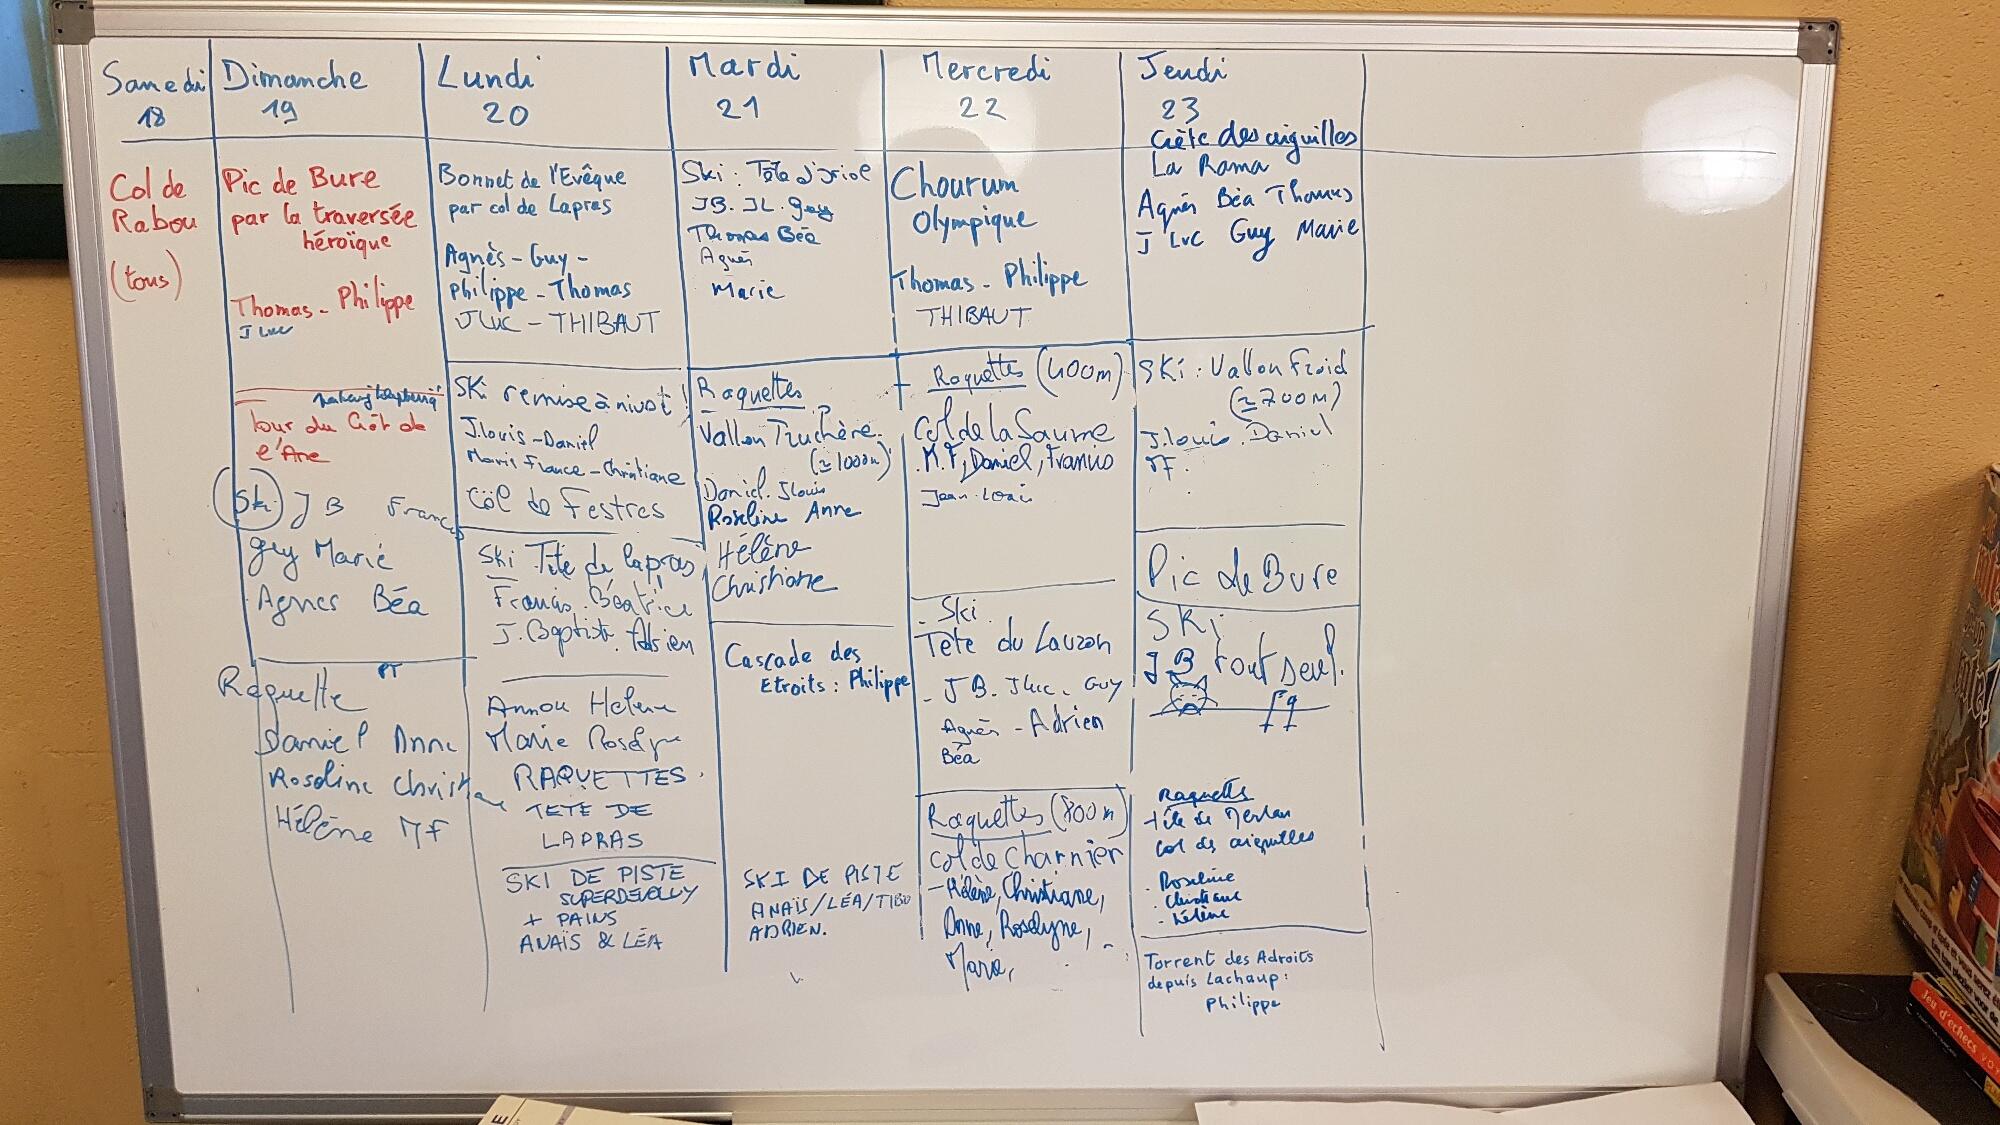 Samedi
18
Col de
Rabou
(tous)
Dimanche
19
Pic de Bure
par la traversée
héroïque
Thomas - Philippe
J Luc
Tour du Crêt de
l'Ane
Ski J B Francis
Guy Marie
Agnes Béa
Raquette
Daniel Anne
Roseline Christiane
Hélène MF
Lundi
20
Bonnet de l'Evêque
par col de Lapras
Agnès - Guy -
Philippe - Thomas
JLuc - THIBAUT
Ski remise à niv
J.louis - Daniel
Marie France - Christiane
Col de Festres
Ski Tête de lapras
Francis. Béatrice
J. Baptiste. Adrien
Hélène
Marie Roselyne
RAQUETTES.
TETE DE
LAPRAS
SKI DE PISTE
SUPERDEVOLLY
+ PAINS
ANAÏS & LÉA
Mardi
21
Ski : Tête d'Oriol
JB. JL. Guy
Thomas Béa
Agnès
Marie
Raquettes
Vallon Truchère.
(≃ 1000m)
Daniel. JLouis
Roseline Anne
Hélène
Christiane
Cascade des
Etroits : Philippe
SKI DE PISTE
ANAÏS/LÉA/TIBO
ADRIEN.
Mercredi
22
Chourum
Olympique
Thomas - Philippe
THIBAUT
Raquettes (400m)
Col de la Saume
M.F, Daniel, Francis
Jean-Louis
- Ski.
Tête du Lauzon
- J B. JLuc. Guy
Agnès - Adrien
Béa
Raquettes (800m)
Col de Charnier
- Hélène, Christiane,
Anne, Roselyne,
Marie,
Jeudi
23
Crête des aiguilles
La Rama
Agnès Béa Thomas
J Luc Guy Marie
SKi : Vallon Froid
(≃ 700m)
J.louis. Daniel
MF.
Pic de Bure
SKi
J B tout seul.
Raquettes
tête de Merlan
col des aiguilles
. Roseline
. Christiane
- Hélène
Torrent des Adroits
depuis Lachaup :
Philippe
Jeu d'échecs